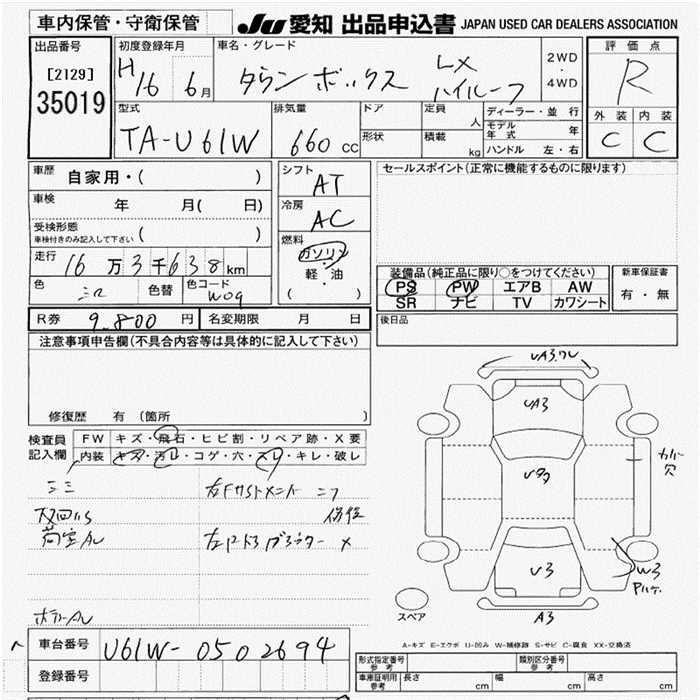 車内保管・守衛保管
JU 愛知 出品申込書 JAPAN USED CAR DEALERS ASSOCIATION
出品番号
[2129]
35019
初度登録年月
H16 6月
車名・グレード
タウンボックス LX ハイルーフ
2WD
4WD
評価点
R
外装 内装
C C
型式
TA-U61W
排気量
660 cc
ドア
形状
定員
人
積載
kg
ディーラー・並行
モデル年式 年
ハンドル 左・右
車歴 自家用・( )
車検 年 月( 日)
受検形態
車検付きのみ記入して下さい ( )
走行
16万3千638km
色 色替 色コード
W09
シフト
AT
冷房
AC
燃料
ガソリン
軽・油
( )
セールスポイント(正常に機能するものに限ります)
装備品(純正品に限り○をつけてください)
PS PW エアB AW
SR ナビ TV カワシート
新車保証書
有・無
R券 9,800 円 名変期限 月 日
後日品
注意事項申告欄(不具合内容等は具体的に記入して下さい)
修復歴 有 (箇所
検査員
記入欄
FW キズ・飛石・ヒビ割・リペア跡・X要
内装 キズ・汚レ・コゲ・穴・スレ・キレ・破レ
荷室AU
UA3
U3
A3
W3
カバー穴
スペア
A-キズ E-エクボ U-凹み W-補修跡 S-サビ C-腐食 XX-交換済
車台番号 U61W-0502694
登録番号
形式指定番号
参考
類別区分番号
参考
車庫証明用
参考
長さ cm 幅 cm 高さ cm